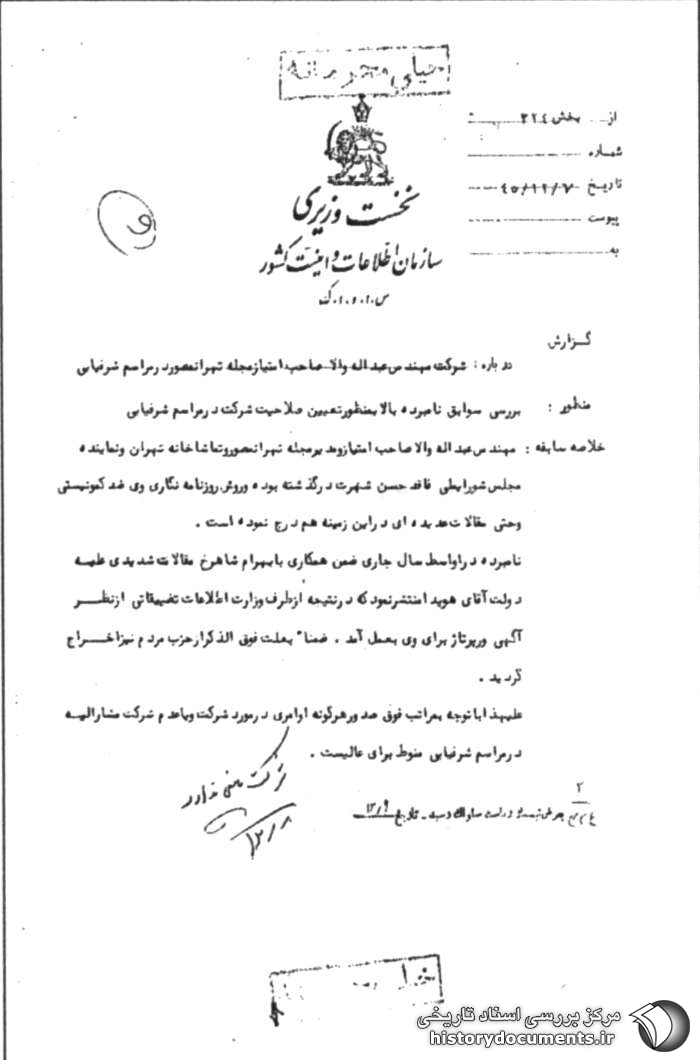 خیلی محرمانه
از بخش ۳۲٤
شماره
تاریخ ٤٥/۱۲/۷
پیوست
به
نخست وزیری
سازمان اطلاعات و امنیت کشور
س.ا.و.ا.ک
گزارش
درباره : شرکت مهندس عبداله والا صاحب امتیاز مجله تهرانمصور در مراسم شرفیابی
منظور : بررسی سوابق نامبرده بالا بمنظور تعیین صلاحیت شرکت در مراسم شرفیابی
خلاصه سابقه : مهندس عبداله والا صاحب امتیاز و مدیر مجله تهرانمصور و تماشاخانه تهران و نماینده
مجلس شورایملی فاقد حسن شهرت در گذشته بوده و روش روزنامه نگاری وی ضد کمونیستی
وحتی مقالات عدیده ای در این زمینه هم درج نموده است .
نامبرده در اواسط سال جاری ضمن همکاری با بهرام شاهرخ مقالات شدیدی علیه
دولت آقای هویدا منتشر نمود که در نتیجه از طرف وزارت اطلاعات تضییقاتی از نظر
آگهی ورپرتاژ برای وی بعمل آمد . ضمناً بعلت فوق الذکر از حزب مردم نیز اخراج
گردید .
علیهذا با توجه بمراتب فوق صدور هرگونه اوامری در مورد شرکت ویا عدم شرکت مشارالیه
در مراسم شرفیابی منوط برای عالیست .
شرکت مانعی ندارد
۱۲/۸
ریاست ساواک رسید - تاریخ ۱۲/۹
مرکز بررسی اسناد تاریخی
historydocuments.ir